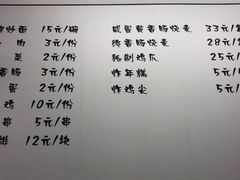 炒面 15元/碗
肉 3元/份
菜 2元/份
香肠 3元/份
蛋 2元/份
鸡 10元/份
串 5元/串
排 12元/块
咸蛋黄香肠烧麦 33元/
德香肠烧麦 28元/
秘制鸡爪 25元/
炸年糕 5元/
炸鸡尖 5元/